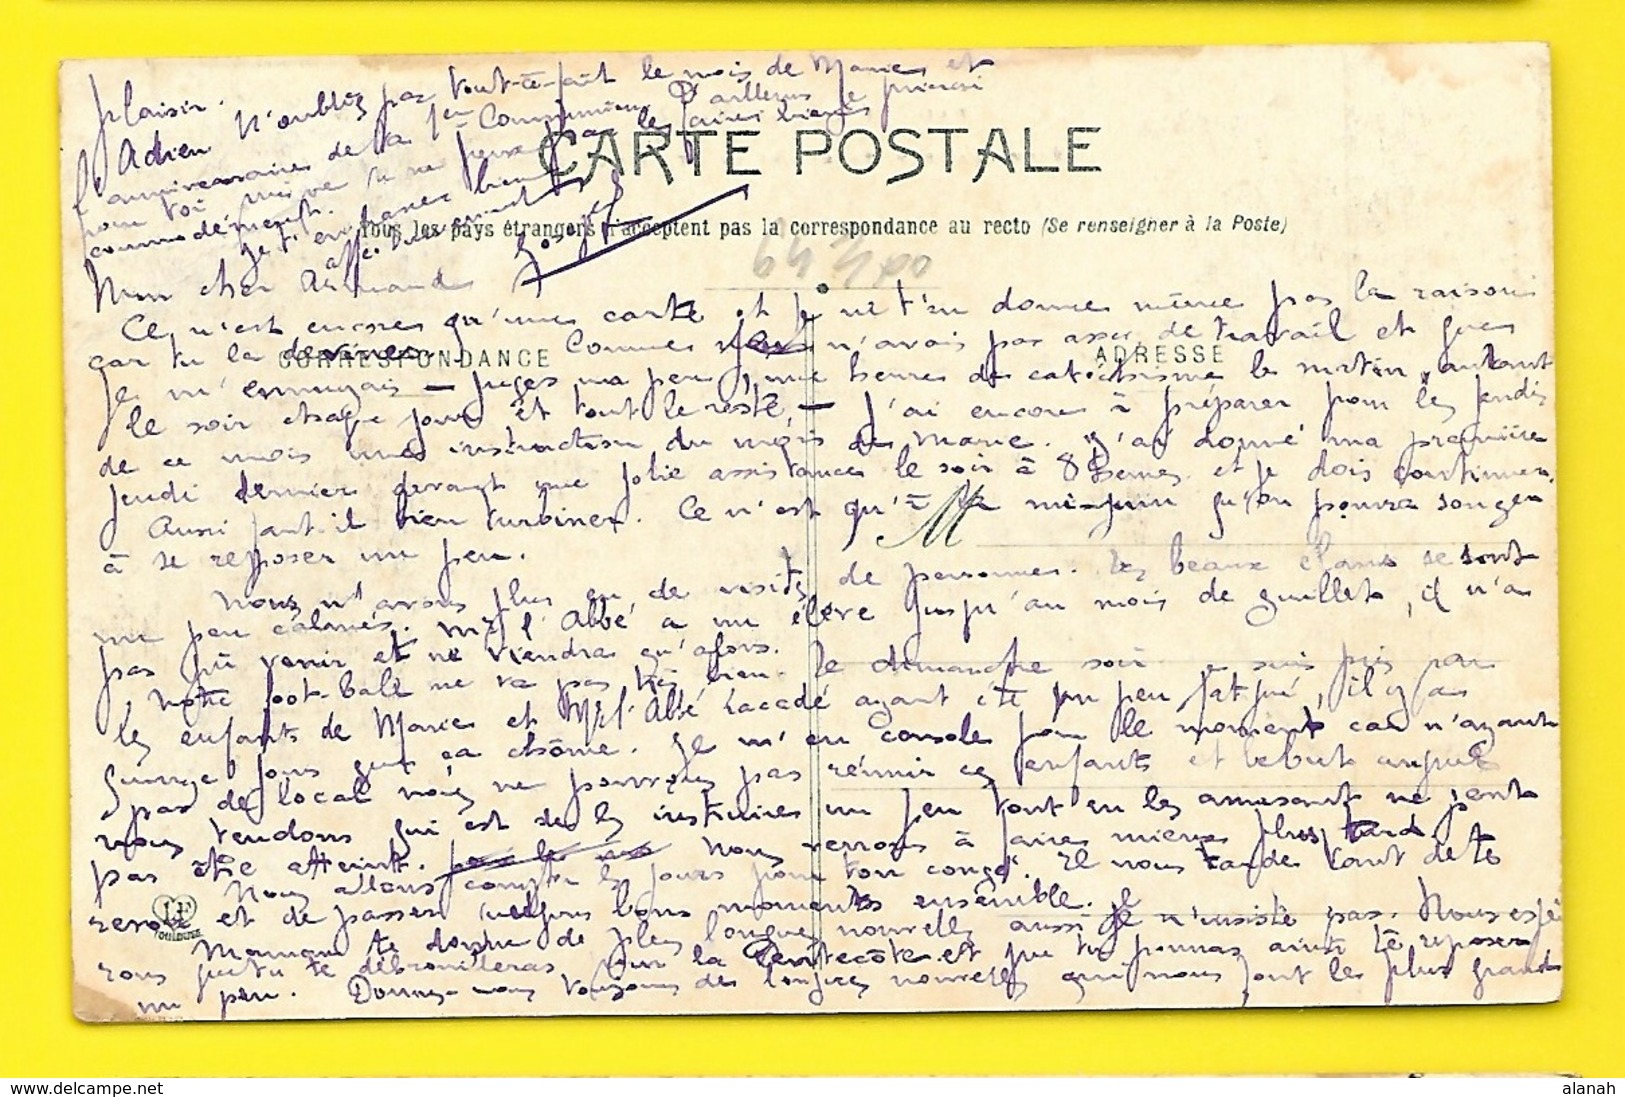 CARTE POSTALE
Tous les pays étrangers n'acceptent pas la correspondance au recto (Se renseigner à la Poste)
CORRESPONDANCE
ADRESSE
Mon cher Armand
Ce n'est encore qu'une carte et je ne t'en donne même pas la raison
car tu la devines. Comme je n'avais pas assez de travail et que
je m'ennuyais — juges un peu, une heure de catéchisme le matin, autant
le soir chaque jour et tout le reste, — j'ai encore à préparer pour les jeudis
de ce mois une instruction du mois de Marie. J'ai donné ma première
jeudi dernier devant une jolie assistance le soir à 8 heures et je dois continuer.
Aussi faut-il bien turbiner. Ce n'est qu'à la mi-juin qu'on pourra songer
à se reposer un peu.
Nous n'avons plus eu de visites de personne. Les beaux élans se sont
un peu calmés. Mr l'Abbé a un élève jusqu'au mois de Juillet, il n'a
pas pu venir et ne viendra qu'alors.
Notre foot-ball ne va pas très bien. Le dimanche soir je suis pris par
les enfants de Marie et Mr l'Abbé Lacadé ayant été un peu fatigué, il y a
quinze jours que ça chôme. Je m'en console pour le moment car n'ayant
pas de local nous ne pourrions pas réunir ces enfants et le but auquel
nous tendons qui est de les instruire un peu tout en les amusant ne peut
pas être atteint. Nous verrons à faire mieux plus tard.
Nous allons compter les jours pour ton congé. Il nous tarde tant de te
revoir et de passer quelques bons moments ensemble.
Maman te donne de plus longues nouvelles aussi je n'insiste pas. Nous espérons
que tu te débrouilleras sur la Pentecôte et que tu pourras ainsi te reposer
un peu. Donnes-nous toujours de longues nouvelles qui nous font le plus grand
plaisir.
Adieu N'oublies pas tout-à-fait le mois de Marie et
l'anniversaire de ta 1ère Communion. D'ailleurs je prierai
pour toi même si tu ne peux pas le faire bien
commodément.
Je t'embrasse bien
affectueusement
Joseph
LF
Toulouse
www.delcampe.net
alanah